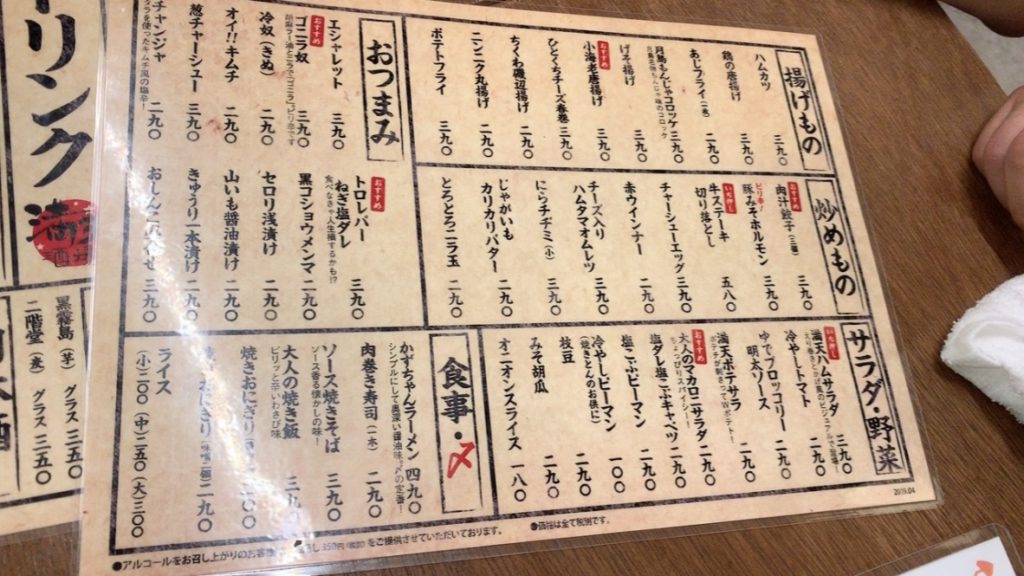 揚げもの
ハムカツ 三九〇
鶏の唐揚げ 三九〇
あじフライ(一名) 二九〇
月島もんじゃコロッケ 三九〇
げそ揚げ 三九〇
おすすめ
小海老唐揚げ 三九〇
ひとくちチーズ春巻 三九〇
ちくわ磯辺揚げ 二九〇
ニンニク丸揚げ 二九〇
ポテトフライ 三九〇
炒めもの
おすすめ
肉汁餃子(三個) 三九〇
ピリ辛!
豚みそホルモン 三九〇
いち押し
牛ステーキ
切り落とし 五八〇
チャーシューエッグ 三九〇
赤ウインナー 三九〇
チーズ入り
ハムタマオムレツ 三九〇
にらチヂミ(小) 三九〇
じゃがいも
カリカリバター 二九〇
とろとろニラ玉 二九〇
サラダ・野菜
いち押し
満天ハムサラダ 三九〇
冷やしトマト 二九〇
ゆでブロッコリー
明太ソース 三九〇
満天ポテサラ 二九〇
おすすめ
大人のマカロニサラダ 二九〇
ちょっぴりスパイシー!
塩ダレ塩こぶキャベツ 二九〇
塩こぶピーマン 二九〇
冷やしピーマン
(焼きとんのお供に) 一〇〇
枝豆 二九〇
みそ胡瓜 二九〇
オニオンスライス 一八〇
おつまみ
エシャレット 三九〇
おすすめ
ゴニラ奴 三九〇
冷奴(きぬ) 二九〇
オイ!!キムチ 二九〇
葱チャーシュー 三九〇
チャンジャ 二九〇
タラを使ったキムチ風の塩辛!
おすすめ
トロレバー
ねぎ塩ダレ 三九〇
黒コショウメンマ 二九〇
セロリ浅漬け 二九〇
山いも醤油漬け 二九〇
きゅうり一本漬け 二九〇
おしんこ 三九〇
食事・〆
かずちゃんラーメン 四九〇
シンプルにして奥深い醤油味、〆の定番!
肉巻き寿司(一本) 二九〇
ソース焼きそば 三九〇
ソース香る懐かしの味!
大人の焼き飯 三九〇
ピリッと辛いわさび味
焼きおにぎり
おにぎり 二九〇
ライス
(小)二〇〇(中)二五〇(大)三〇〇
●アルコールをお召し上がりのお客様
350円(税別)をご提供させていただいております。
●価格は全て税別です。
2019.04
リンク
黒霧島(芋) グラス 三五〇
二階堂(麦) グラス 三五〇